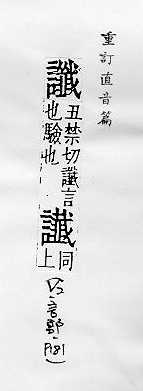 重訂直音篇
讖
丑禁切讖言
也驗也
䜟
同
上
言部